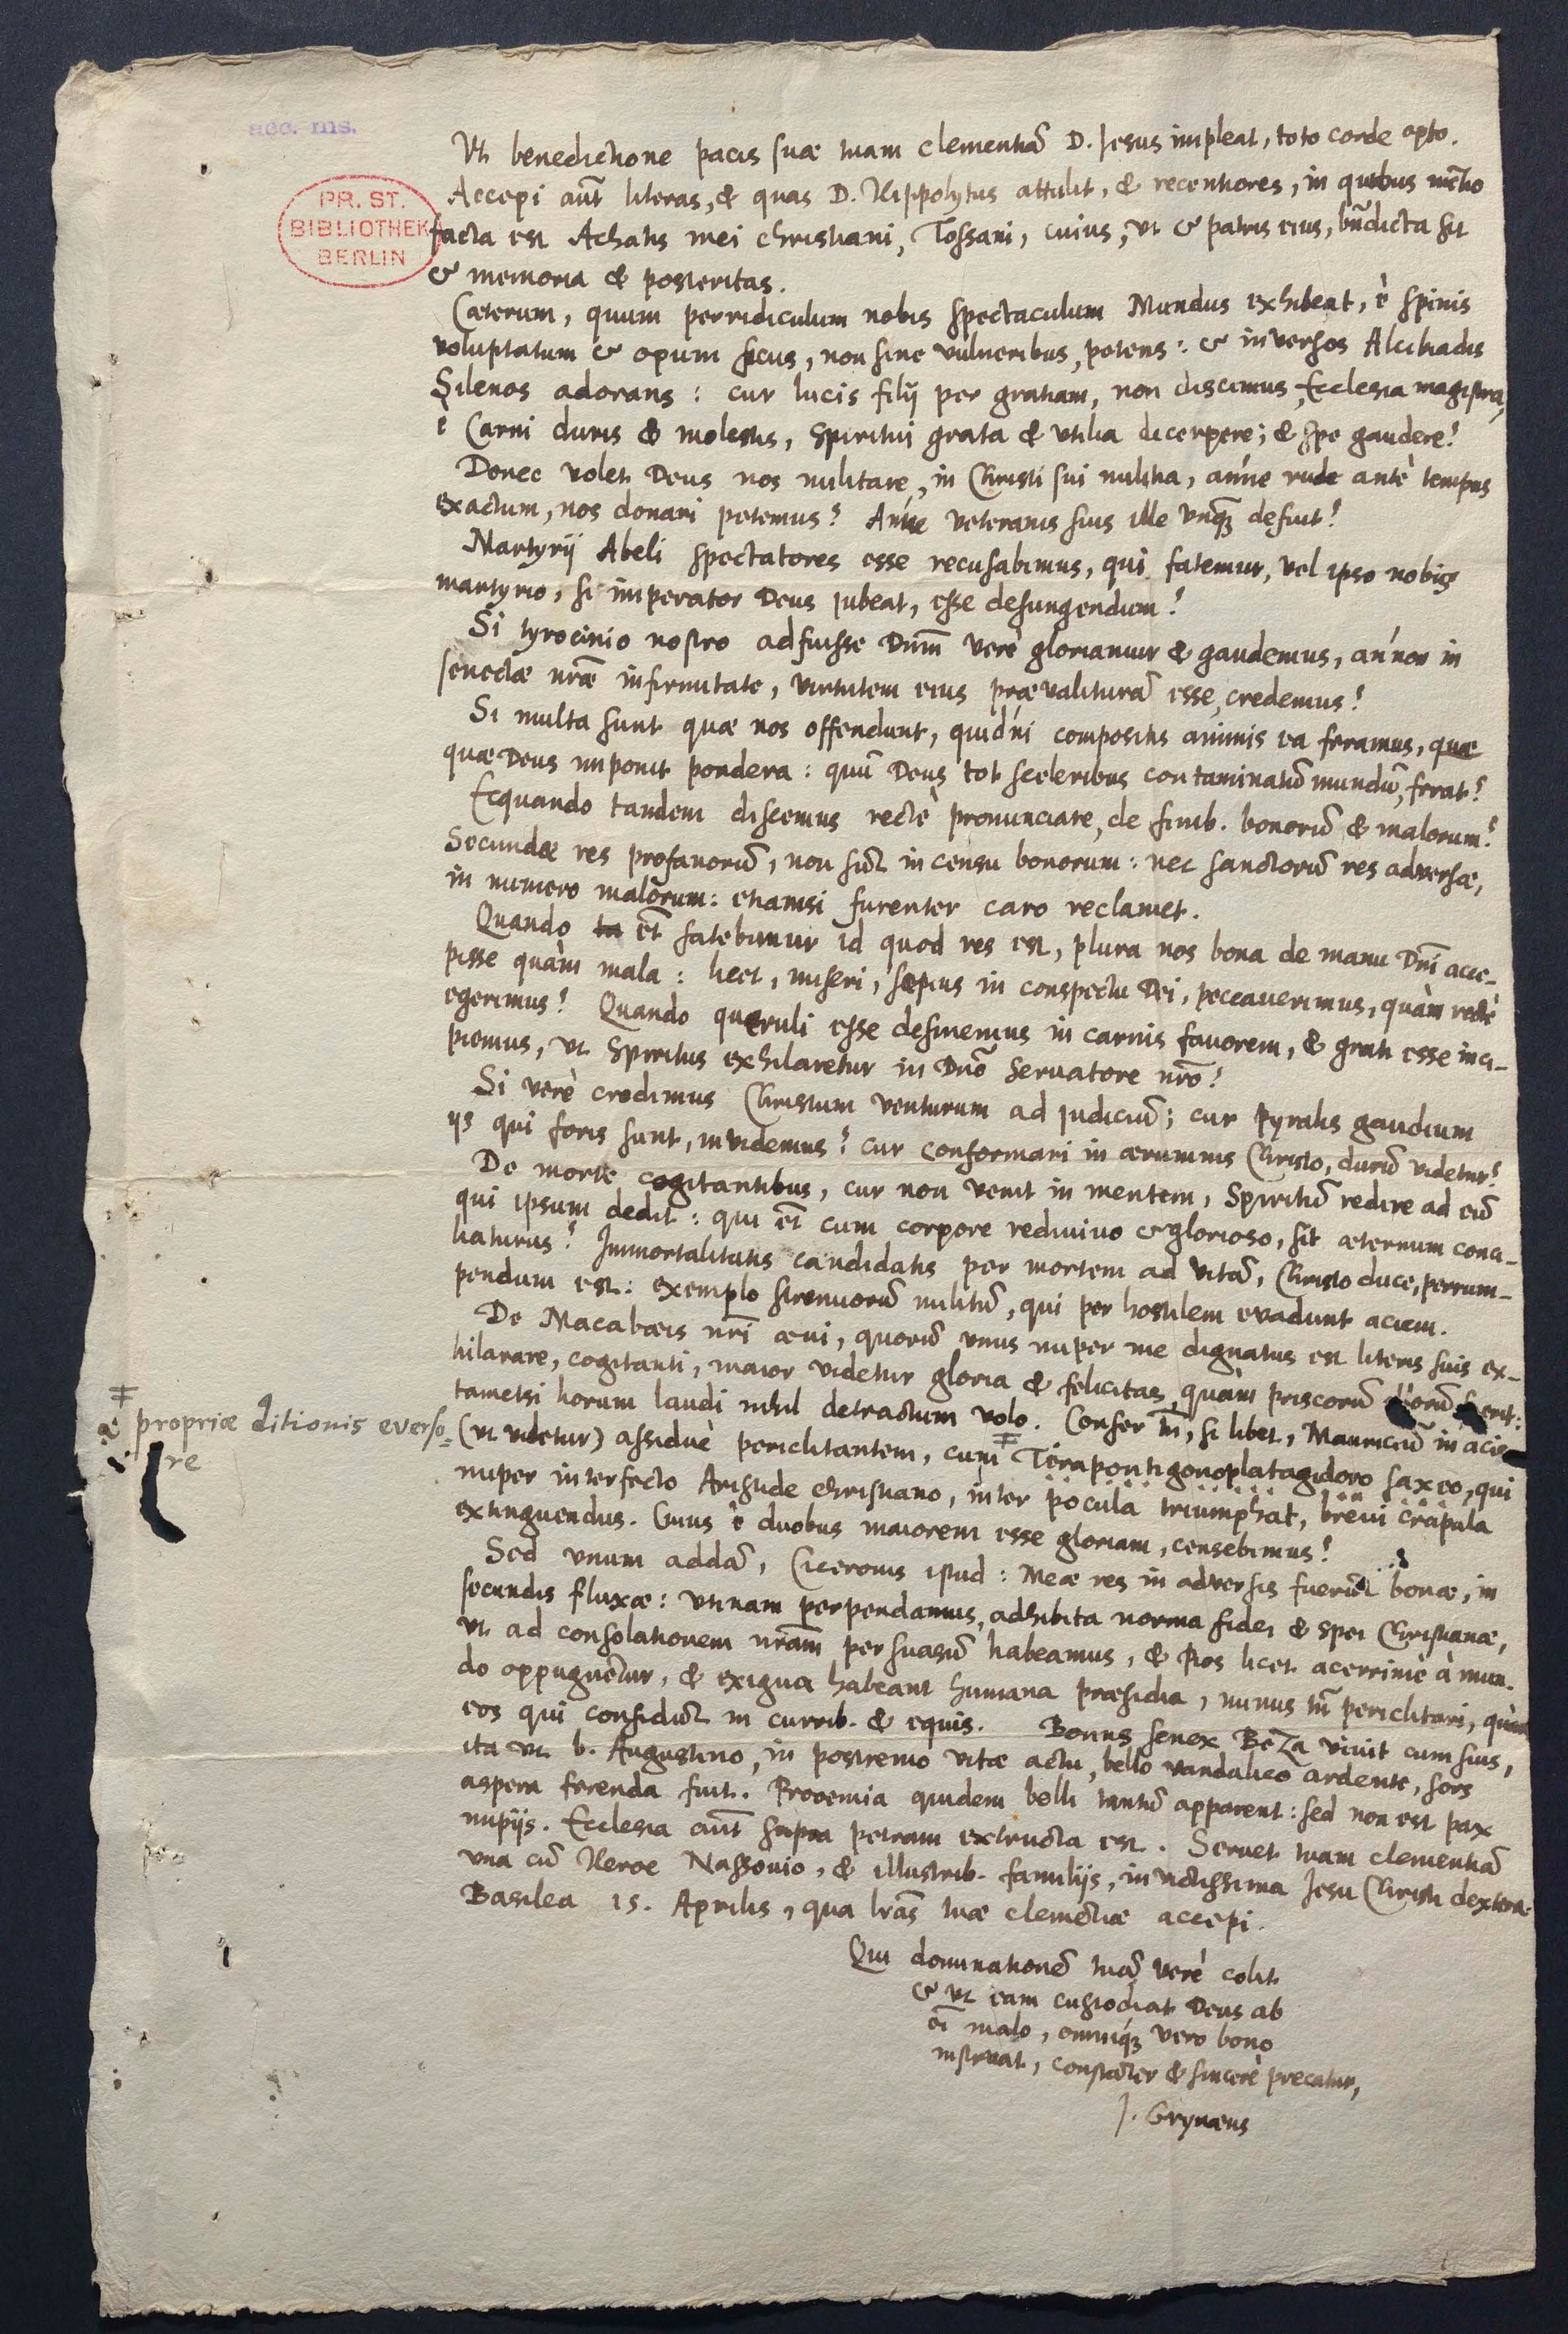 acc. ms.
PR. ST.
BIBLIOTHEK
BERLIN
Vt benedictione pacis suæ tuam clementiã D. Jesus impleat, toto corde opto.
Accepi aũt literas, & quas D. Hippolytus attulit, & recentiores, in quibus mẽtio
facta est Achatis mei christiani, Tossani, cuius, vt & patris eius, bñdicta sit
& memoria & posteritas.
Cæterum, quum perridiculum nobis spectaculum Mundus exhibeat, è spinis
voluptatum & opum ficus, non sine vulneribus, petens: & inversos Alcibiadis
Silenos adorans: cur lucis filij per gratiam, non discimus, Ecclesia magistra,
è Carni duris & molestis, Spiritui grata & vtilia dicerpere; & spe gaudere?
Donec volet Deus nos militare, in Christi sui militia, án'ne rude antè tempus
exactum, nos donari petemus? Án'ne veteranis suis ille vnq̃ȝ defuit?
Martyrij Abeli spectatores esse recusabimus, qui fatemur, vel ipso nobis
martyrio, si imperator Deus jubeat, esse defungendum?
Si tyrocinio nostro adfuisse Dnm̃ verè gloriamur & gaudemus, án'non in
senectæ nr̃æ infirmitate, virtutem eius prævaliturã esse, credemus?
Si multa sunt quæ nos offendunt, quid'ni compositis animis ea feramus, quæ
quæ Deus imponit pondera: quũ Deus tot sceleribus contaminatũ mundũ, ferat?
Ecquando tandem discemus rectè pronunciare, de finib. bonorũ & malorum?
Secundæ res profanorũ, non sũt in censu bonorum: nec sanctorũ res adversæ,
in numero malorum: etiamsi furenter caro reclamet.
Quando ta et̃ fatebimur id quod res est, plura nos bona de manu Dñi acce-
pisse quàm mala: licet, miseri, sæpius in conspectu Dei, peccaverimus, quàm rectè
egerimus? Quando queruli esse desinemus in carnis favorem, & grati esse inci-
piemus, vt Spiritus exhilaretur in Dño Servatore nr̃o?
Si verè credimus Christum venturum ad judiciũ; cur Pyralis gaudium
ijs qui foris sunt, invidemus? cur conformari in ærumnis Christo, durũ videtur?
De morte cogitantibus, cur non venit in mentem, Spiritũ redire ad eũ
qui ipsum dedit: qui et̃ cum corpore redivivo & glorioso, sit æternum conci-
liaturus? Immortalitatis candidatis per mortem ad vitã, Christo duce, perrum-
pendum est: exemplo strenuorũ militũ, qui per hostilem evadunt aciem.
De Macabæis nr̃i ævi, quorũ vnus nuper me dignatus est literis suis ex-
hilarare, cogitanti, maior videtur gloria & felicitas, quàm priscorũ
tametsi horum laudi nihil detractum volo. Confer tm̃, si libet, Mauriciũ in acie
(vt videtur) assiduè periclitantem, cum Terapontigonoplatagidoro saxeo, qui
nuper interfecto Aristide christiano, inter pocula triumphat, brevi crapula
extinguendus. Cuius è duobus maiorem esse gloriam, censebimus?
propriæ ditionis everso=
re
Sed vnum addã, Ciceronis istud: Meæ res in adversis fuerũt bonæ, in
secundis fluxæ: vtinam perpendamus, adhibita norma fidei & spei Christianæ,
vt ad consolationem nr̃am persuasũ habeamus, & Pios licet acerrimè à mun-
do oppugnẽtur, & exigua habeant humana præsidia, minus tm̃ periclitari, quàm
eos qui confidũt in currib. & equis. Bonus senex BeZa vivit cum suis,
ita vt b. Augustino, in postremo vitæ actu, bello vandalico ardente, sors
aspera ferenda fuit. Prooemia quidem belli tantũ apparent: sed non est pax
impijs. Ecclesia aũt supra petram extructa est. Servet tuam clementiã
vna cũ Heroe Nassovio, & illustrib. familijs, invictissima Jesu Christi dextera.
Basilea 15. Aprilis, qua lr̃as tuæ clemẽtiæ accepi.
Qui dominationẽ tuã verè colit
& vt eam custodiat Deus ab
õi malo, omniq́ȝ vero bono
instruat, constãter & sincerè precatur,
J. Grynæus